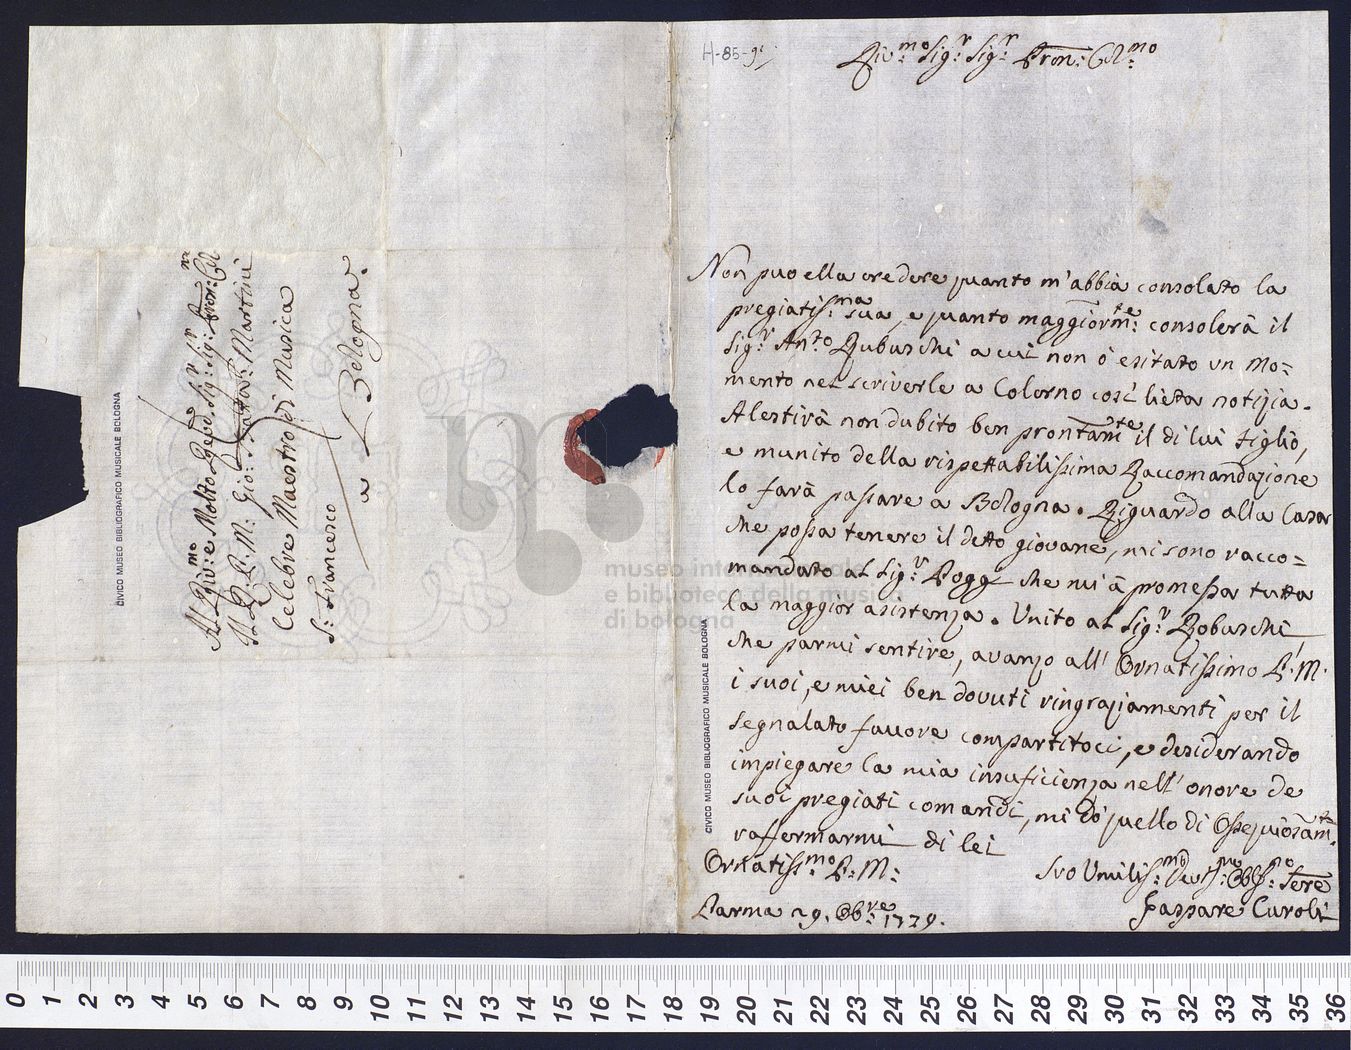 Al Riv:mo e Molto Revdo Sigr: Sigr: Pron: Col
Il P. M: Gio: Batta: Martini
Celebre Maestro di Musica
S: Francesco
a Bologna.
CIVICO MUSEO BIBLIOGRAFICO MUSICALE BOLOGNA
H-85-
Riv:mo Sig:r Sig:r Pron: Col:mo
Non puo ella credere quanto m'abbia consolato la
pregiatiss:ma sua, e quanto maggiorm:te consolerà il
Sig:r Anto Robuschi a cui non ò esitato un mo=
mento nel scriverle a Colorno così lieta notizia.
Alestirà non dubito ben prontamte il di lui figlio,
e munito della rispettabilissima Raccomandazione
lo farà passare a Bologna. Riguardo alla Casa
che possa tenere il detto giovane, mi sono racco=
mandato al Sig:r Poggi che mi à promessa tutta
la maggior asistenza. Unito al Sig:r Robuschi
che parmi sentire, avanzo all' Ornatissimo P. M.
i suoi, e miei ben dovuti ringraziamenti per il
segnalato favore compartitoci, e desiderando
impiegare la mia insuficienza nell' onore de
suoi pregiati comandi, mi dò quello di Ossequiosamte
raffermarmi di lei
Ornatiss:mo P: M:
Suo Umiliss:mo Devt:mo Obb:mo Serre
Parma 29. Obre: 1779.
Gaspare Caroli
CIVICO MUSEO BIBLIOGRAFICO MUSICALE BOLOGNA
museo internazionale
e biblioteca della musica
di bologna
0 1 2 3 4 5 6 7 8 9 10 11 12 13 14 15 16 17 18 19 20 21 22 23 24 25 26 27 28 29 30 31 32 33 34 35 36